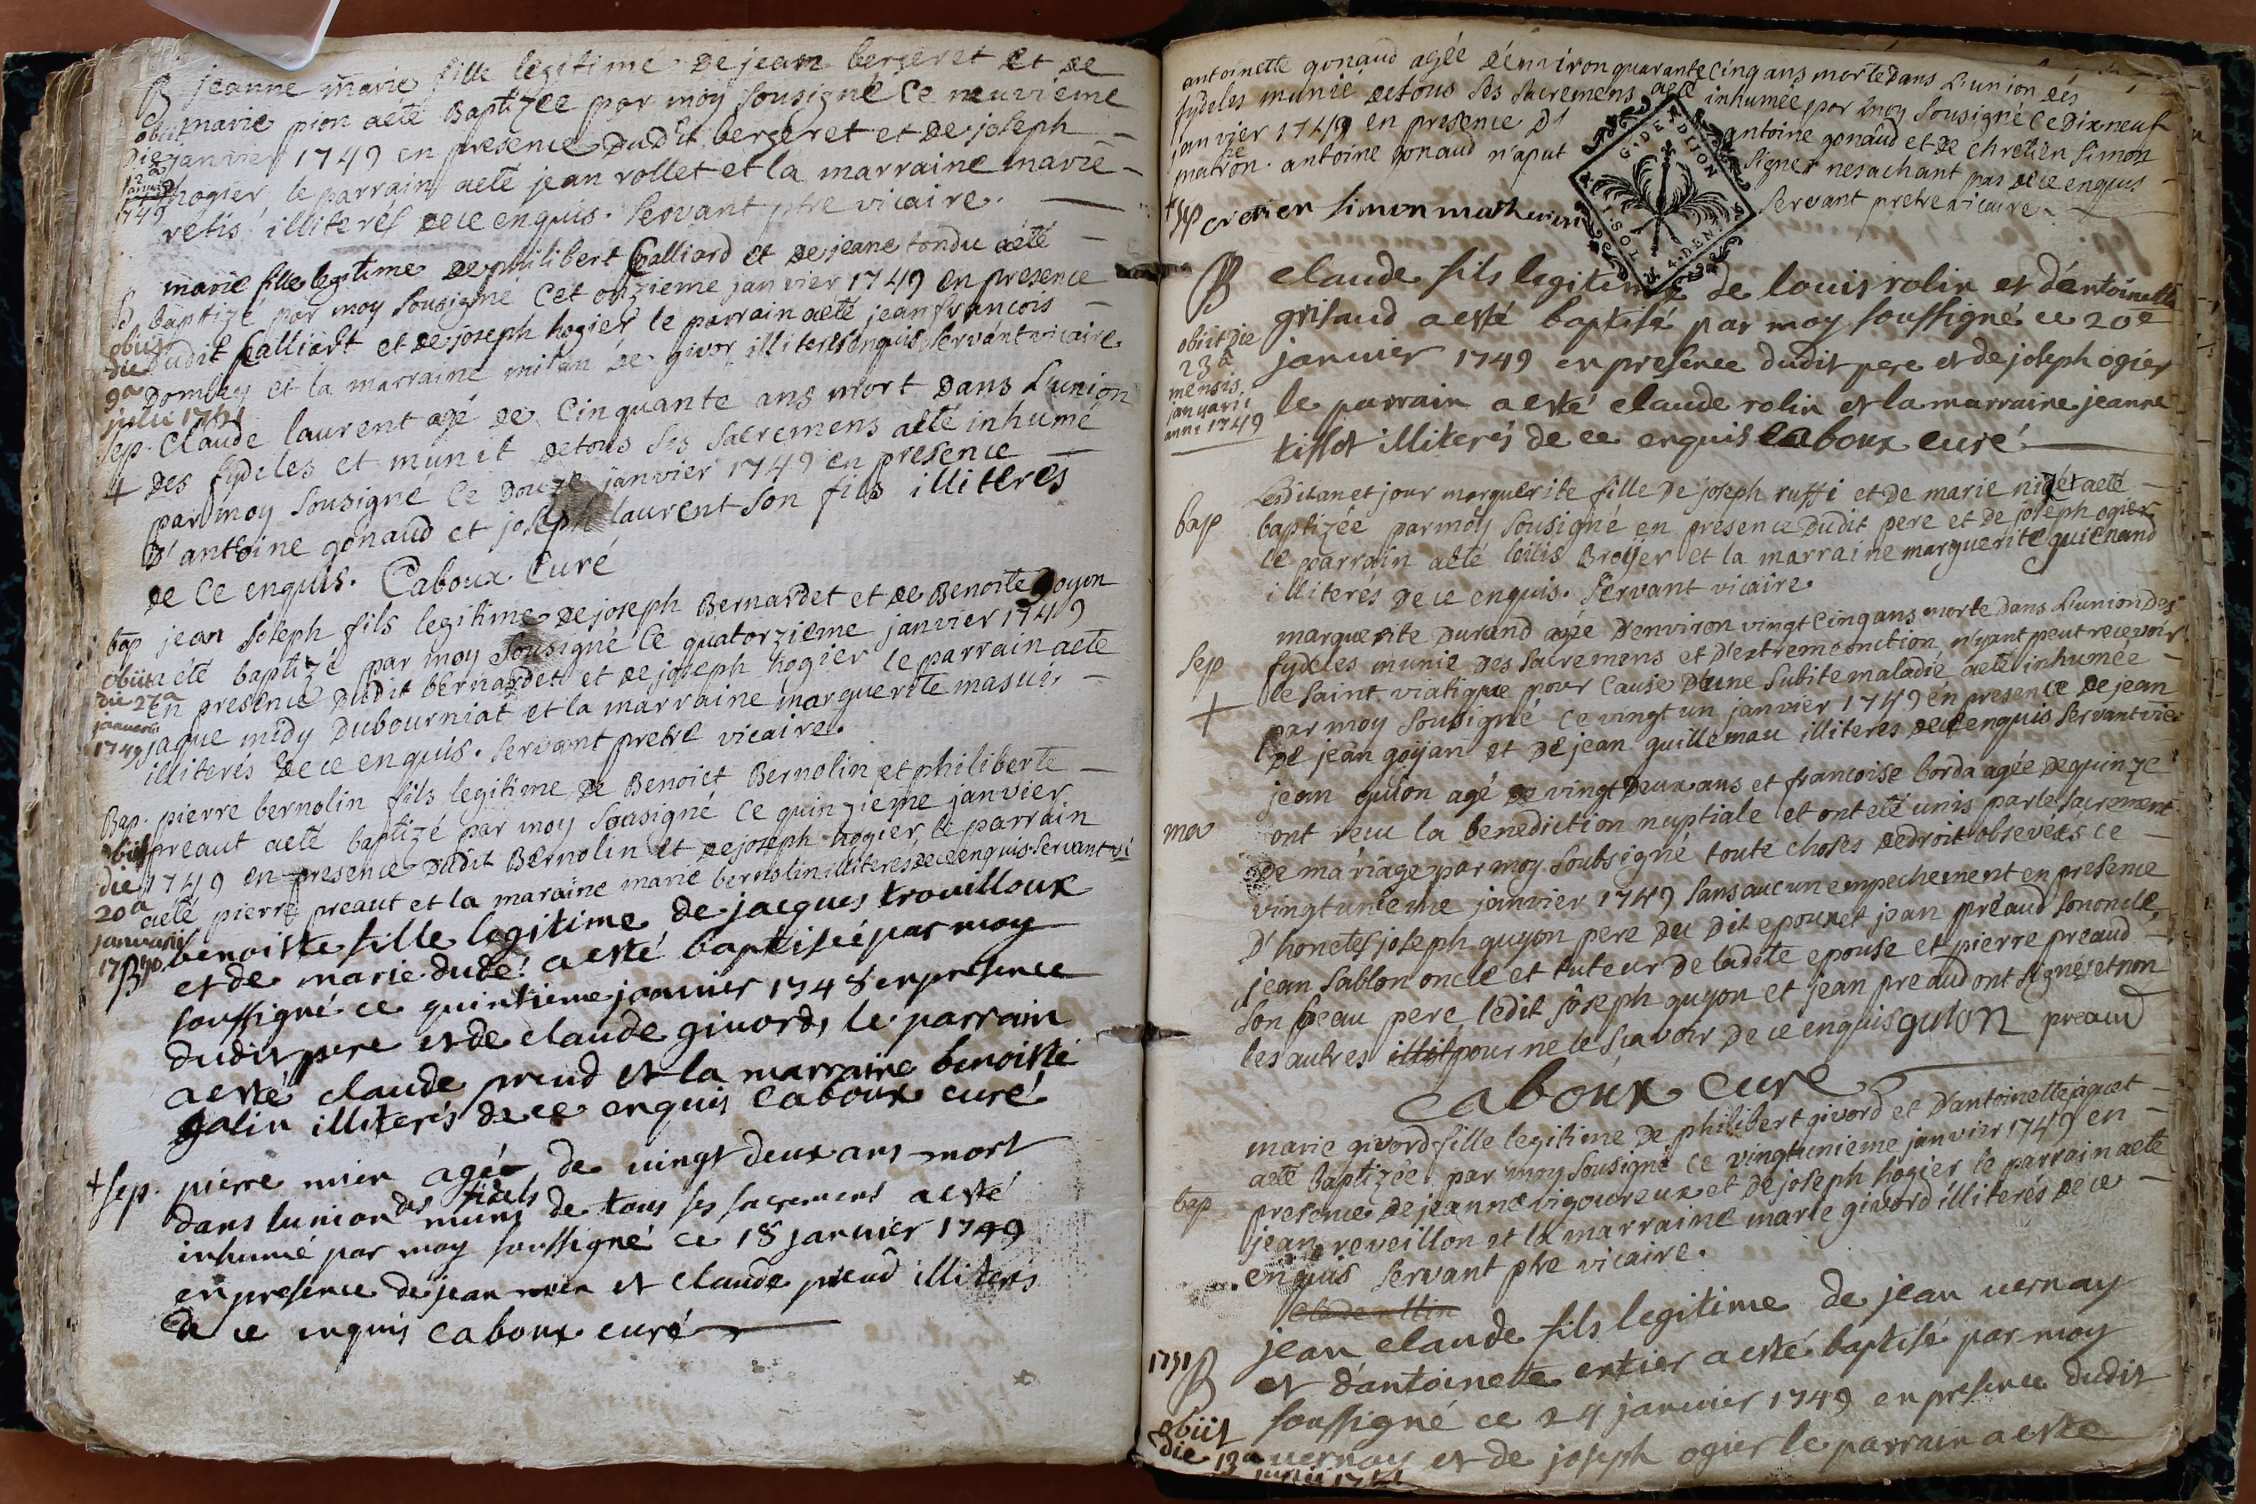 B jeanne marie fille legitime de jean bergeret et de
obiit marie pion aeté Baptizée par moy sousigné Ce neuvieme
die janvier 1749 en presence dudit bergeret et de joseph
12a januarii hogier le parrain aeté jean rollet et la marraine marie
1749 retis illiterés de ce enquis. Servant ptre vicaire.
marie fille legitime de philibert Galliard et de jeane tondu aeté
B baptizé par moy sousigné Cet onzieme janvier 1749 en presence
obiit dudit Galliard et de joseph hogier le parrain aeté jean francois
die Dombey et la marraine de givor illiteres enquis servant vicaire
9a julii
Sep. Claude laurent agé de Cinquante ans mort dans L'union
+ des fydeles et munit de tous ses sacremens aeté inhumé
par moy sousigné Ce Douze janvier 1749 en presence
D'antoine gonaud et joseph laurent son fils illiteres
de Ce enquis. Caboux Curé
bap jean joseph fils legitime de joseph Bernardet et de Benoite goyon
obiit aété baptizé par moy sousigné Ce quatorzieme janvier 1749
die 27a en presence dudit bernardet et de joseph hogier le parrain aeté
januarii jaque midy Dubourniat et la marraine marguerite masué
1749 illiterés de ce enquis. servant pretre vicaire.
Bap. pierre bernolin fils legitime de Benoiet Bernolin et philiberte
obiit preaut aeté baptizé par moy sousigné Ce quinzieme janvier
die 1749 en presence dudit Bernolin et de joseph hogier le parrain
20a aeté pierre preaut et la maraine marie bernolin illiterés de ce enquis servant vi
januarii benoiste fille legitime de jacques trouilloux
B et de marie dudé aesté baptisée par moy
soussigné ce quintieme janvier 1748 en presence
dudit pere et de claude givord, le parrain
aesté claude preud et la marraine benoiste
galin illiterés de ce enquis Caboux curé
+ sep. pierre mier agé de vingt deux ans mort
dans lunion des fidels muni de tous ses sacremens aesté
inhumé par moy soussigné ce 18 janvier 1749
en presence de jean mier et claude preud illiterés
de ce enquis Caboux curé
antoinette gonaud agée d'environ quarante Cinq ans morte dans L'union des
fydeles munie de tous ses sacremens aeté inhumée par moy sousigné Ce Dixneuf
janvier 1749 en presence d' antoine gonaud et de chretien simon
matron. antoine gonaud n'aput signer ne sachant pas de ce enquis
+ sep cretien simon servant pretre vicaire
G. DE DIJON
4. DEN
B claude fils legitime de louis rolin et d'entoinette
grisaud aesté baptisé par moy soussigné ce 20e
obiit die 23a janvier 1749 en presence dudit pere et de joseph ogier
mensis januarii le parrain aesté claude rolin et la marraine jeanne
anni 1749 tissot illiterés de ce enquis Caboux curé
Ledit an et jour marguerite fille de joseph ruffi et de marie aeté
bap baptizée par moy sousigné en presence dudit pere et de joseph ogier
le parrain aeté loüis Broÿer et la marraine marguerite guienand
illiterés de ce enquis. Servant vicaire
marguerite Durand agée D'environ vingt Cinq ans morte dans L'union des
Sep fydeles munie des sacremens et D'extremeonction, n'yant peut recevoir
+ le saint viatique pour Cause D'une subite maladie aeté inhumée
par moy sousigné Ce vingt un janvier 1749 en presence de jean
de jean goyan et de jean guillemau illiteres de ce enquis servant vic
jean guion agé de vingt deux ans et francoise borda agée de quinze
mar ont recu la benediction nuptiale et ont eté unis par le sacrement
de mariage par moy soubsigné toute choses de droit obsevées ce
vingtunieme janvier 1749 sans aucun empechement en presence
D'honetes joseph guyon pere du dit epoux et jean préaud son oncle,
jean sablon oncle et tuteur de ladite epouse et pierre preaud
son beau pere ledit joseph guyon et jean preaud ont signés et non
les autres pour ne le sçavoir de ce enquis guion preaud
Caboux Curé
marie givord fille legitime de philibert givord et D'antoinette aquet
aeté baptizée par moy sousigné Ce vingtunieme janvier 1749 en
bap presence de jeanne vigoureux et de joseph hogier le parrain aeté
jean reveillon et la marraine marie givord illiterés de ce
enquis Servant ptre vicaire.
jean claude fils legitime de jean vernay
1751 B et d'antoinette ertier aesté baptisé par moy
soussigné ce 24 janvier 1749 en presence dudit
obiit die 13a vernay et de joseph ogier le parrain aesté